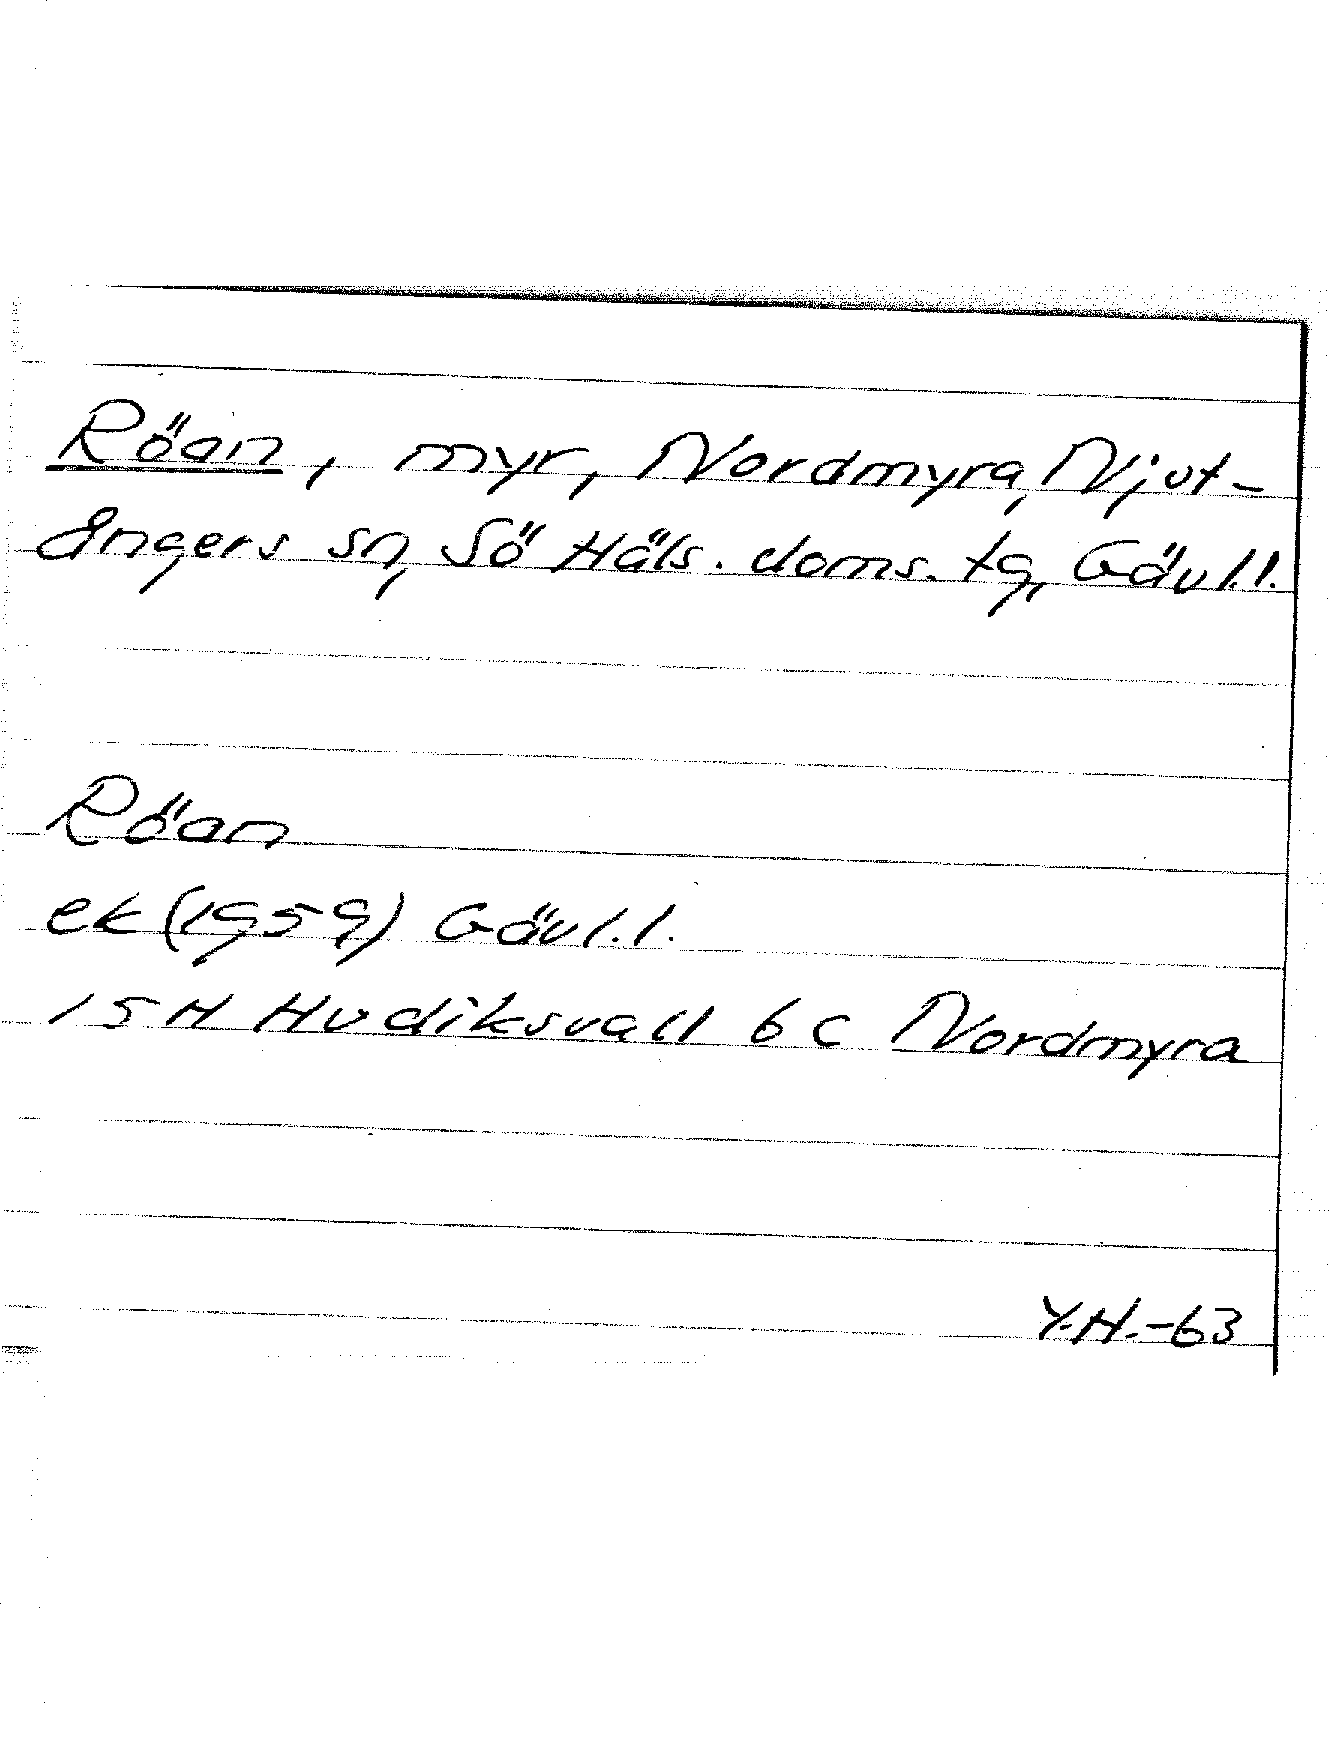 Röan, myr, Nordmyra, Njut-
ångers sn, Sö Häls. doms. tg, Gävl.l.
Röan
ek (1959) Gävl.l.
15H Hudiksvall 6 c Nordmyra
Y.H.-63